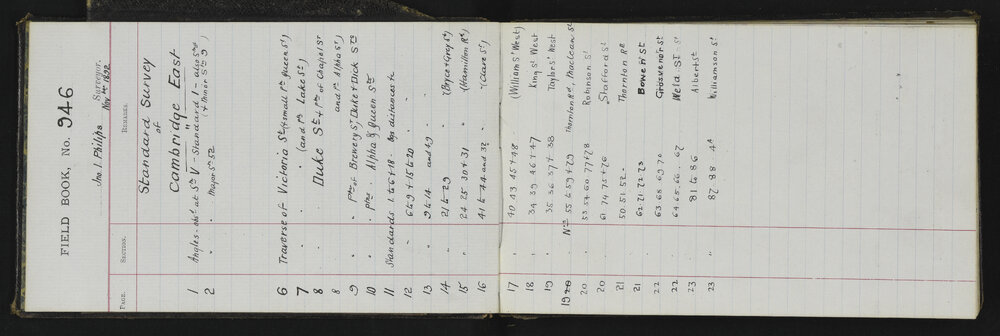 FIELD BOOK, No. 946
Jno. J. Philips Surveyor.
Nov. 1892
PAGE. SECTION. REMARKS.
Standard Survey
of
Cambridge East
1 Angles obsd at St V - Standard 1 - also Std
2 " Major St 52 (& Minor St 9)
6 Traverse of Victoria St (& small Pt Queen St)
7 " " (and Pt Lake St)
8 Duke St & Pt of Chapel St
8 and Pt Alpha St)
9 " Pts of Brewery St Duke & Dick Sts
10 " pins. Alpha & Queen Sts
11 Standards 1 to 6 + 18 distances &c
12 " 6 to 9 + 15 to 20
13 " 9 to 14 and 49
14 " 21 to 29 (Bryce + Gray St)
15 " 24 25 30 + 31 (Hamilton Rd)
16 " 41 to 44 and 32 (Clare St)
17 " 40 43 45 + 48 (William St West)
18 34 39 46 + 47 King St West
19 35 36 37 + 38 Taylor St West
19 20 Nos 55 to 59 + 79 Thornton Rd, Maclean St
20 53 54 60 77 + 78 Robinson St
20 61 74 75 + 76 Stafford St
21 50. 51. 52 Thornton Rd
21 62. 71. 72. 73 Bowen St
22 63. 68. 69. 70 Grosvenor St
22 64. 65. 66. 67 Weld St
23 81 to 86 Albert St
23 87 88 Williamson St